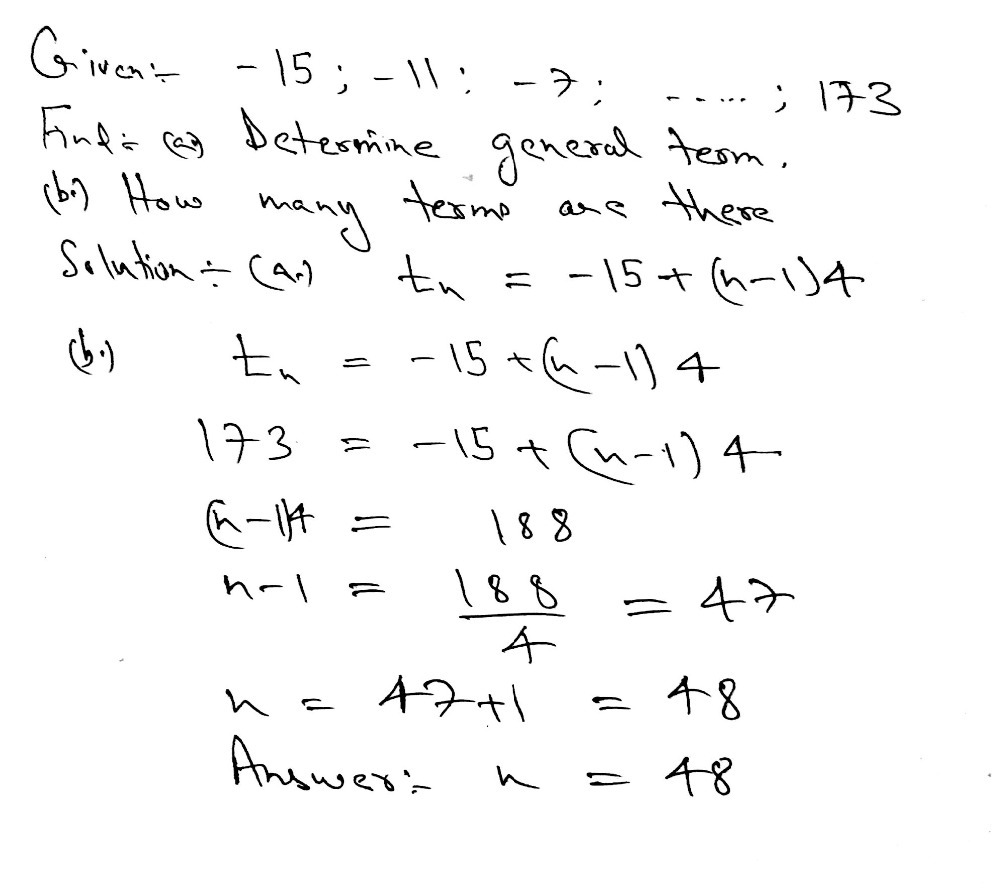 Given:- -15 ; -11 ; -7 ; ..... ; 173
Find:- (a) Determine general term.
(b.) How many terms are there
Solution:- (a.) tn = -15 + (n-1)4
(b.) tn = -15 + (n-1) 4
173 = -15 + (n-1) 4
(n-1)4 = 188
n-1 = 188/4 = 47
n = 47+1 = 48
Answer:- n = 48